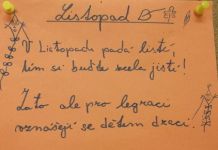 Listopad
V Listopadu padá listí,
tím si buďte zcela jistí!
Zato ale pro legraci
vznášejí se dětem draci.